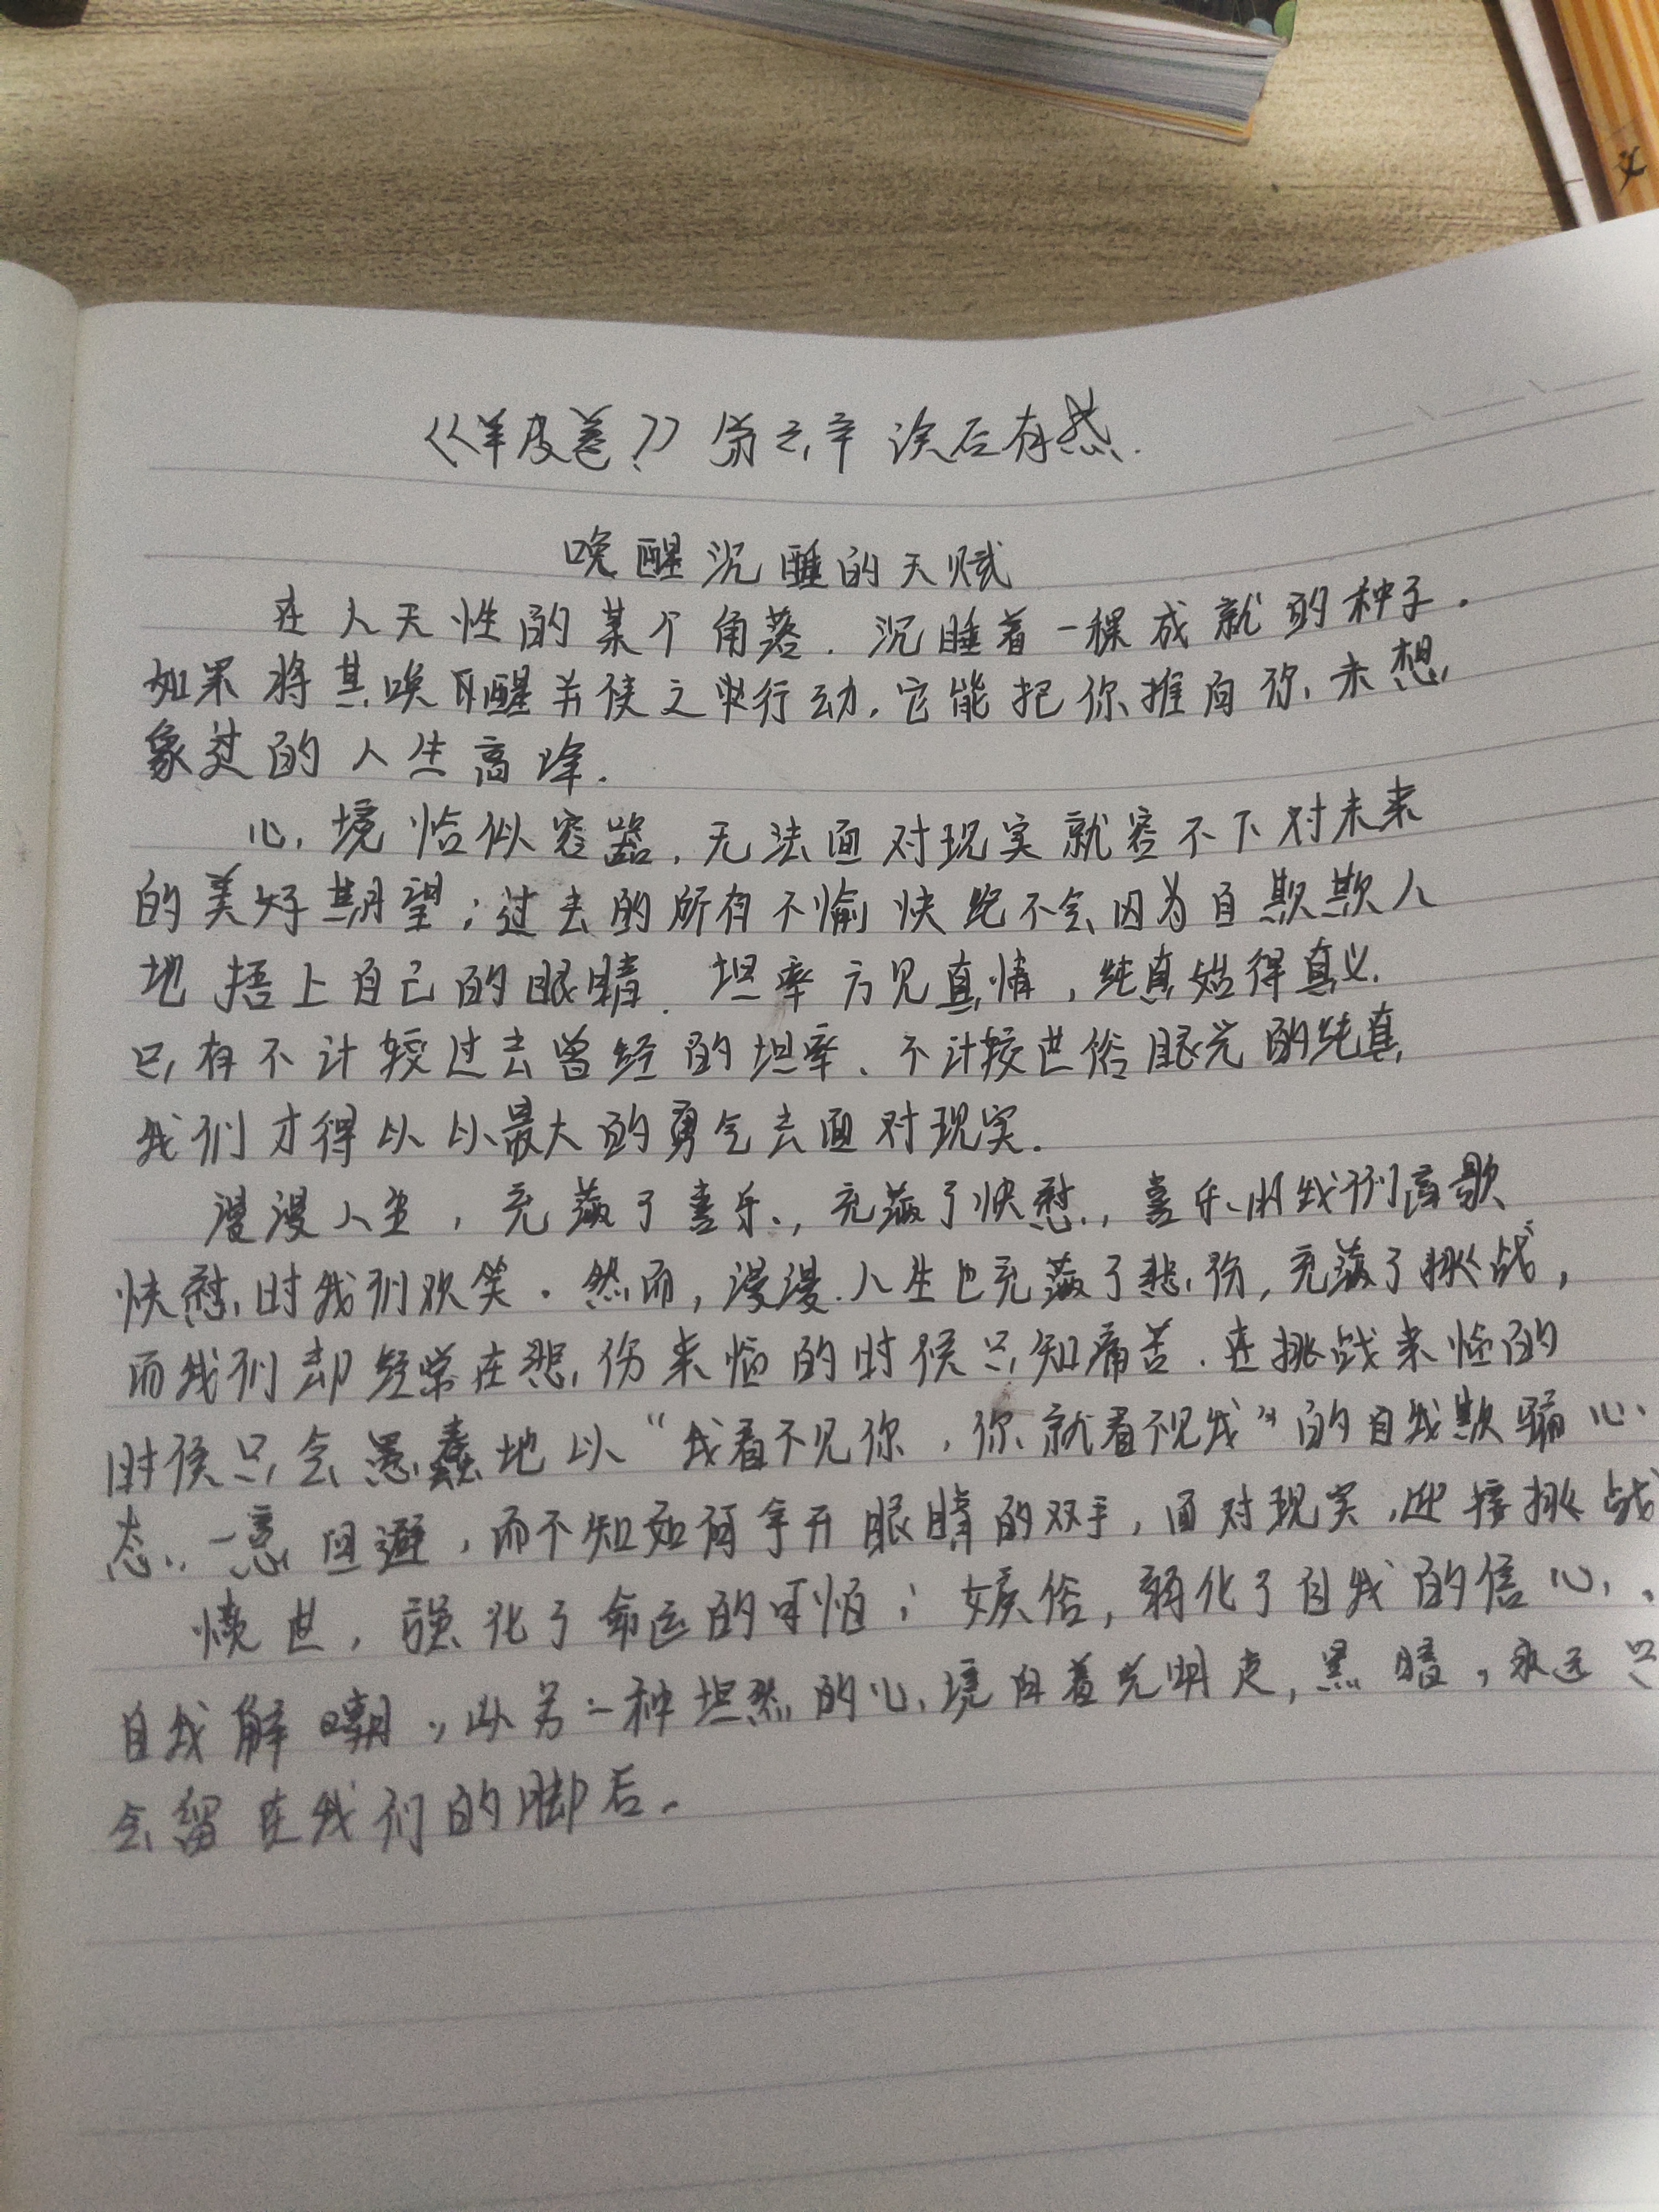 文
《羊皮卷》 读后有感.
唤醒沉睡的天赋
在人天性的某个角落.沉睡着一棵成就的种子.
如果将其唤醒并使之 行动,它能把你推向你未想
象过的人生高峰.
心境恰似容器,无法面对现实就容不下对未来
的美好期望;过去的所有不愉快绝不会因为自欺欺人
地捂上自己的眼睛.坦率方见真情,纯真始得真义.
只有不计较过去曾经的坦率、不计较世俗眼光的纯真,
我们才得以以最大的勇气去面对现实.
漫漫人生,充蕴了喜乐,充蕴了快慰,喜乐时我们高歌
快慰时我们欢笑.然而,漫漫人生也充蕴了悲伤,充蕴了挑战,
而我们却经常在悲伤来临的时候只知痛苦.在挑战来临的
时候只会愚蠢地以“我看不见你,你就看不见我”的自我欺骗心
态,一意回避,而不知如何拿开眼睛的双手,面对现实,迎接挑战
愤世,强化了命运的可怕;嫉俗,弱化了自我的信心,
自我解嘲,以另一种坦然的心境向着光明走,黑暗,永远只
会留在我们的脚后.